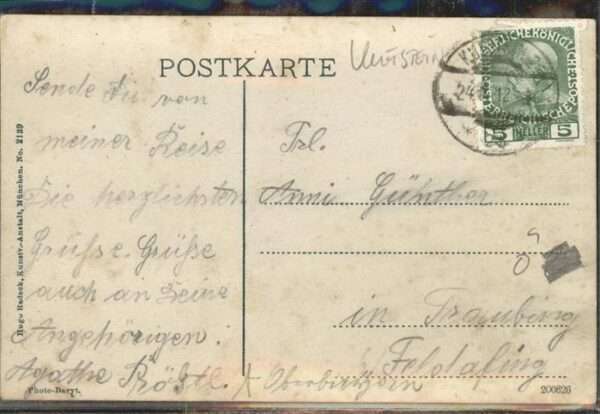 POSTKARTE
KUFSTEIN
KAISERLICHE KÖNIGLICHE
ÖSTERREICHISCHE POST
5 HELLER 5
24 12
Sende Dir von
meiner Reise
Die herzlichsten
Grüsse. Grüße
auch an Deine
Angehörigen.
Agathe Rößtl.
Frl.
Anni Günther
in Traubing
Feldafing
Oberbayern
Hugo Radeck, Kunstv.-Anstalt, München. No. 2139
Photo-Baryt.
200626